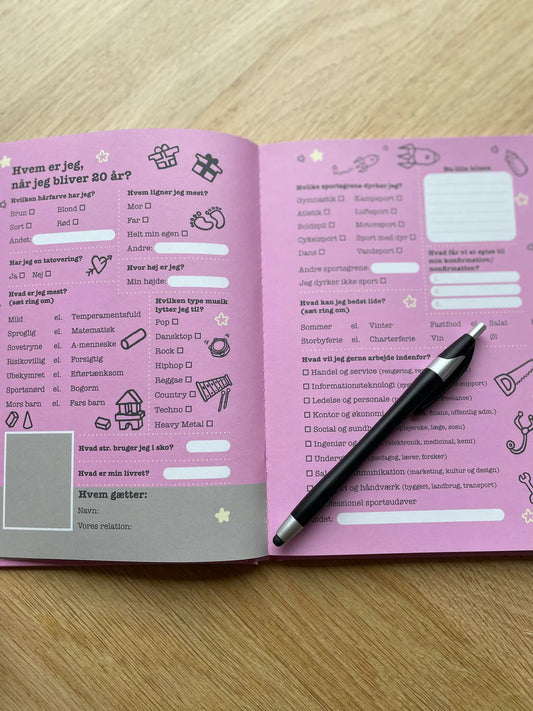 Hvem er jeg,
når jeg bliver 20 år?
Hvilken hårfarve har jeg?
Brun Blond
Sort Rød
Andet:
Har jeg en tatovering?
Ja Nej
Hvad er jeg mest?
(sæt ring om)
Mild el. Temperamentsfuld
Sproglig el. Matematisk
Sovetryne el. A-menneske
Risikovillig el. Forsigtig
Ubekymret el. Eftertænksom
Sportsnørd el. Bogorm
Mors barn el. Fars barn
Hvem ligner jeg mest?
Mor
Far
Helt min egen
Andre:
Hvor høj er jeg?
Min højde:
Hvilken type musik
lytter jeg til?
Pop
Dansktop
Rock
Hiphop
Reggae
Country
Techno
Heavy Metal
Hvad str. bruger jeg i sko?
Hvad er min livret?
Hvem gætter:
Navn:
Vores relation:
Hvilke sportsgrene dyrker jeg?
Gymnastik Kampsport
Atletik Luftsport
Boldspil Motorsport
Cykelsport Sport med dyr
Dans Vandsport
Andre sportsgrene:
Jeg dyrker ikke sport
En lille hilsen
Hvad får vi at spise til
min konfirmation/
nonfirmation?
1.
2.
3.
Hvad kan jeg bedst lide?
(sæt ring om)
Sommer el. Vinter Fastfood el. Salat
Storbyferie el. Charterferie Vin Øl
Hvad vil jeg gerne arbejde indenfor?
Handel og service (rengøring,
Informationsteknologi support)
Ledelse og personale freelance)
Kontor og økonomi finans, offentlig adm.)
Social og sundhed læge, sosu)
Ingeniør og (elektronik, medicinal, kemi)
Undervisning (pædagog, lærer, forsker)
Salg kommunikation (marketing, kultur og design)
og håndværk (byggeri, landbrug, transport)
Professionel sportsudøver
Andet: